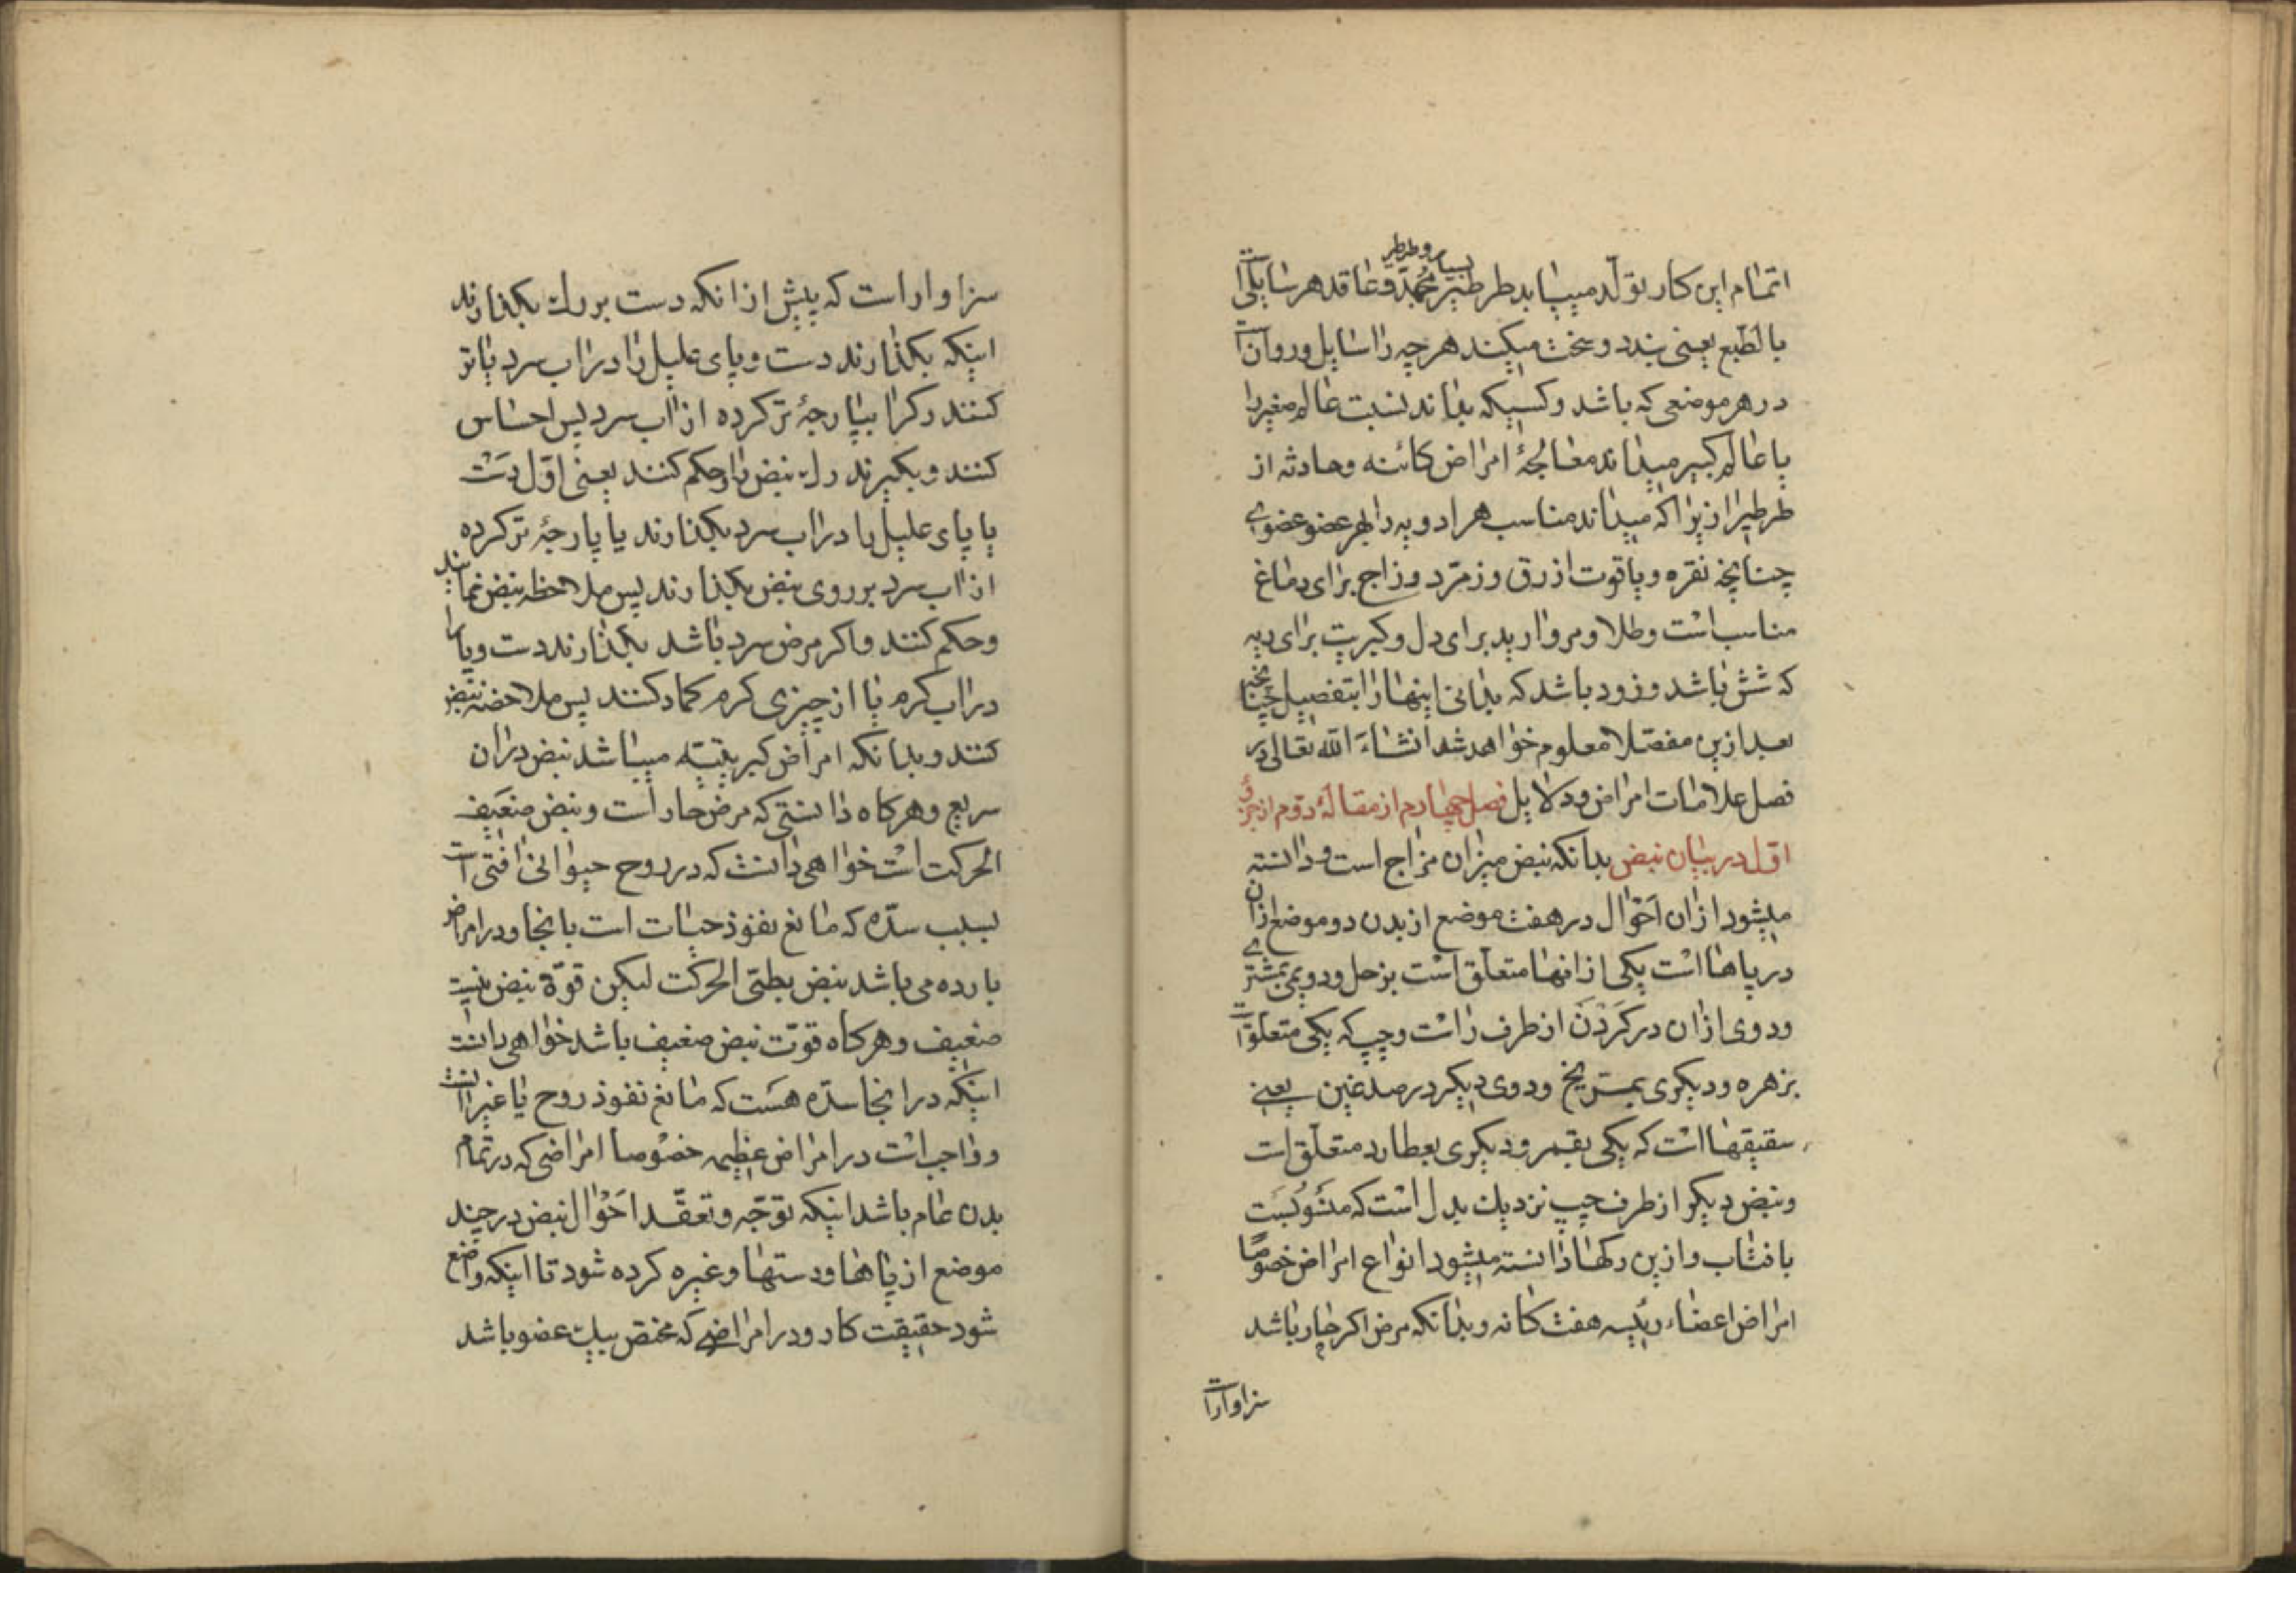 اتمام این کار تولد مییابد طرطیر و طرطیر بسیار مجمد و عاقد هر سایلی است
بالطبع یعنی بندد و سخت میکند هرچه را سایل و روان است
در هر موضعی که باشد و کسیکه بداند نسبت عالم صغیر را
با عالم کبیر میداند معالجهٔ امراض کائنه و حادثه از
طرطیر از برا که میداند مناسب هر ادویه را بهر عضو عضوی
چنانچه نقره و یاقوت ازرق و زمرّد و زاج برای دماغ
مناسب است و طلا و مروارید برای دل و کبریت برای ریه
که شش باشد و زود باشد که بدانی اینها را بتفصیل چنانچه
بعد ازین مفصّلا معلوم خواهد شد انشاءَ الله تعالی در
فصل علامات امراض و دلایل فصل چهارم از مقالهٔ دوم از جزؤ
اوّل در بیان نبض بدانکه نبض میزان مزاج است و دانسته
میشود ازان اَحْوال در هفت موضع از بدن دو موضع ازان
در پاها است یکی ازانها متعلّق است بزحل و دویمی بمشتری
و دوی ازان در کَرْدَن از طرف راست و چپ که یکی متعلّق است
بزهره و دیکری بمریخ و دوی دیکر در صدغین یعنی
شقیقها است که یکی بقمر و دیکری بعطارد متعلّق است
و نبض دیکر از طرف چپ نزدیك بدل است که منسُوبَست
بافتاب و ازین رکها دانسته میشود انواع امراض خصوصًا
امراض اعضاء رئیسه هفت کانه و بدانکه مرض اکر حار باشد
سزاوار است
سزاوار است که پیش ازانکه دست بر رك بکذارند
اینکه بکذارند دست و پای علیل را در اب سرد یا تر
کنند رکرا بپارچهٔ تر کرده از اب سرد پس احساس
کنند و بکیرند رك نبض را و حکم کنند یعنی اوّل دست
یا پای علیل را در اب سرد بکذارند یا پارچهٔ تر کرده
از اب سرد بر روی نبض بکذارند پس ملاحظه نبض نمایند
و حکم کنند و اکر مرض سرد باشد بکذارند دست و پا را
در اب کرم یا از چیزی کرم کماد کنند پس ملاحضه نبض
کنند و بدانکه امراض کبریتیّه میباشد نبض دران
سریع و هرکاه دانستی که مرض حار است و نبض ضعَیف
الحرکت است خواهی دانست که در روح حیوانی افتی است
بسبب سدّه که مانع نفوذ حیات است بانجا و در امراض
بارده می باشد نبض بطئی الحرکت لیکن قوّة نبض نیست
ضعیف و هرکاه قوّت نبض ضعیف باشد خواهی دانست
اینکه درانجا سدّه هسَت که مانع نفوذ روح یا غیرانست
و واجب است در امراض عظیمه خصُوصا امراضی که در تمام
بدن عام باشد اینکه توجّه و تعقّد اَحْوال نبض در چند
موضع از پاها و دستها و غیره کرده شود تا اینکه واضع
شود حقیقت کار و در امراضی که مختص بیك عضو باشد